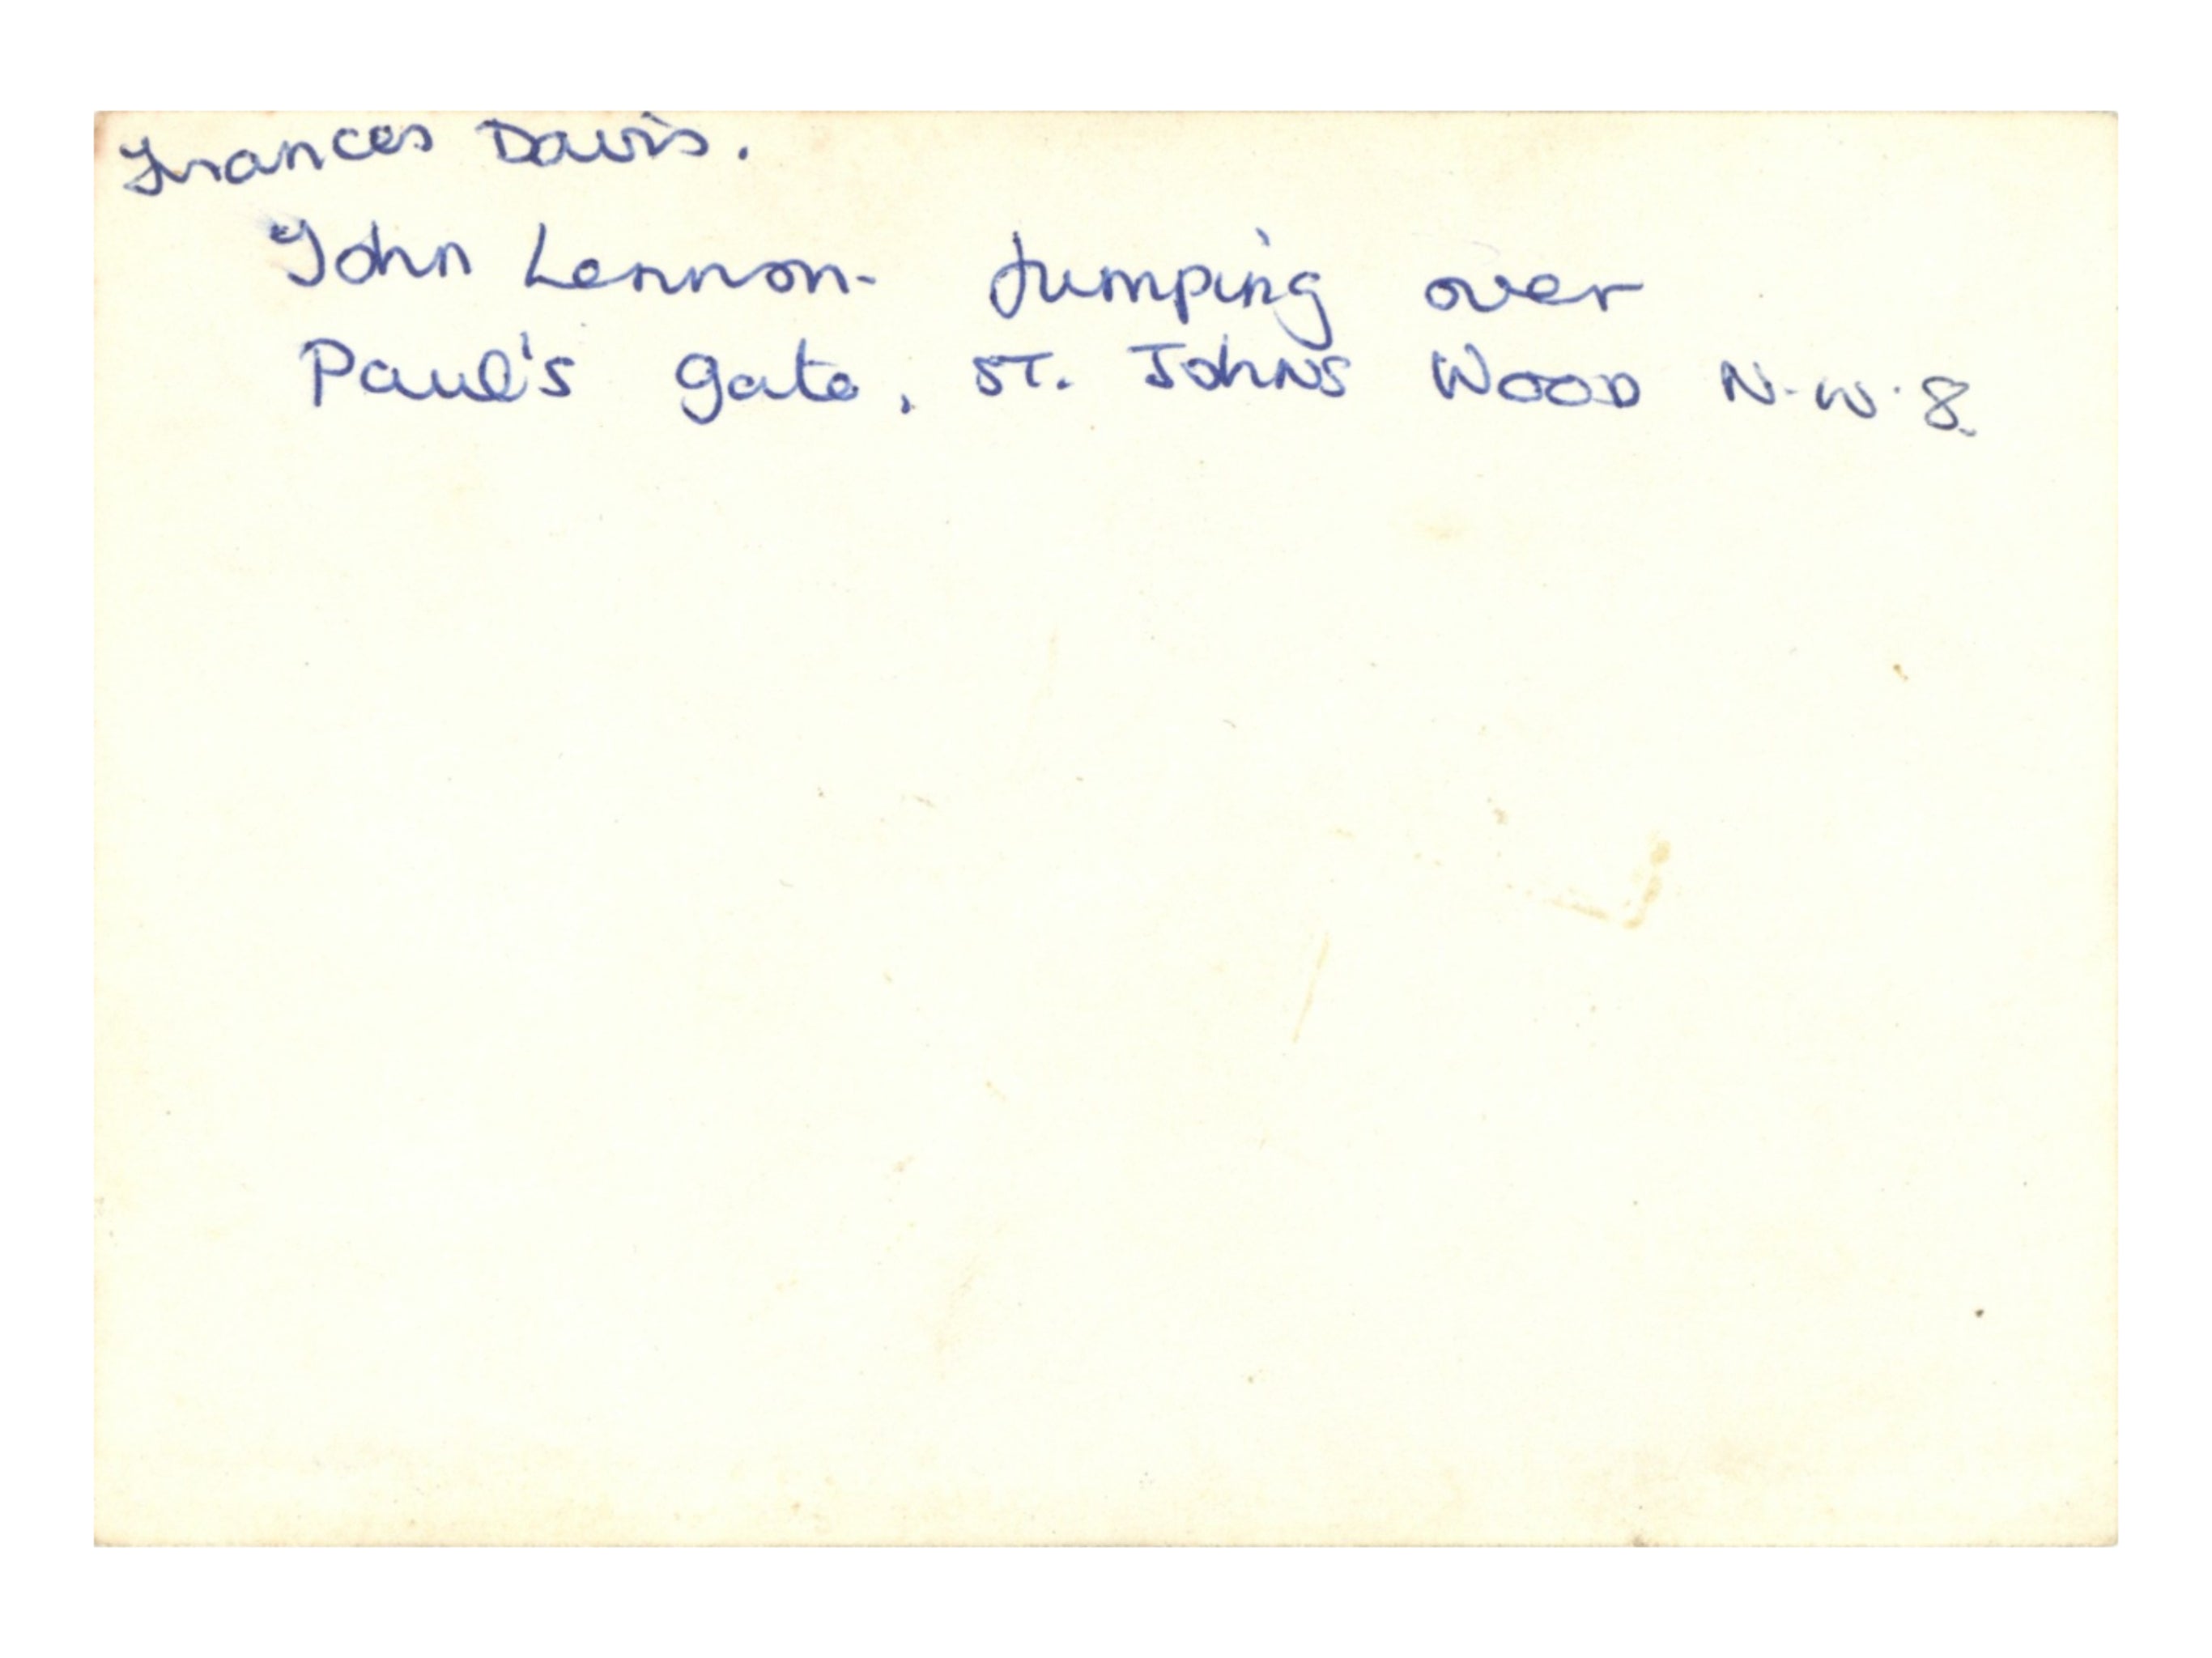 Frances Davis.
John Lennon - Jumping over
Paul's gate, ST. JOHNS WOOD N.W.8.